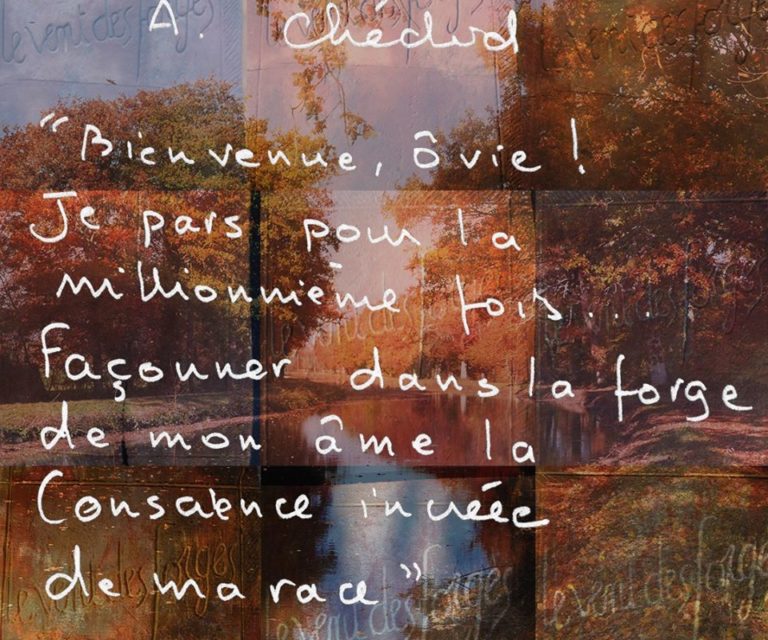 le vent des forges
A. Chédid
"Bienvenue, ô vie !
Je pars pour la
millionnième fois....
façonner dans la forge
de mon âme la
Conscience incréée
de ma race"
le vent des forges
le vent des forges
le vent des forges